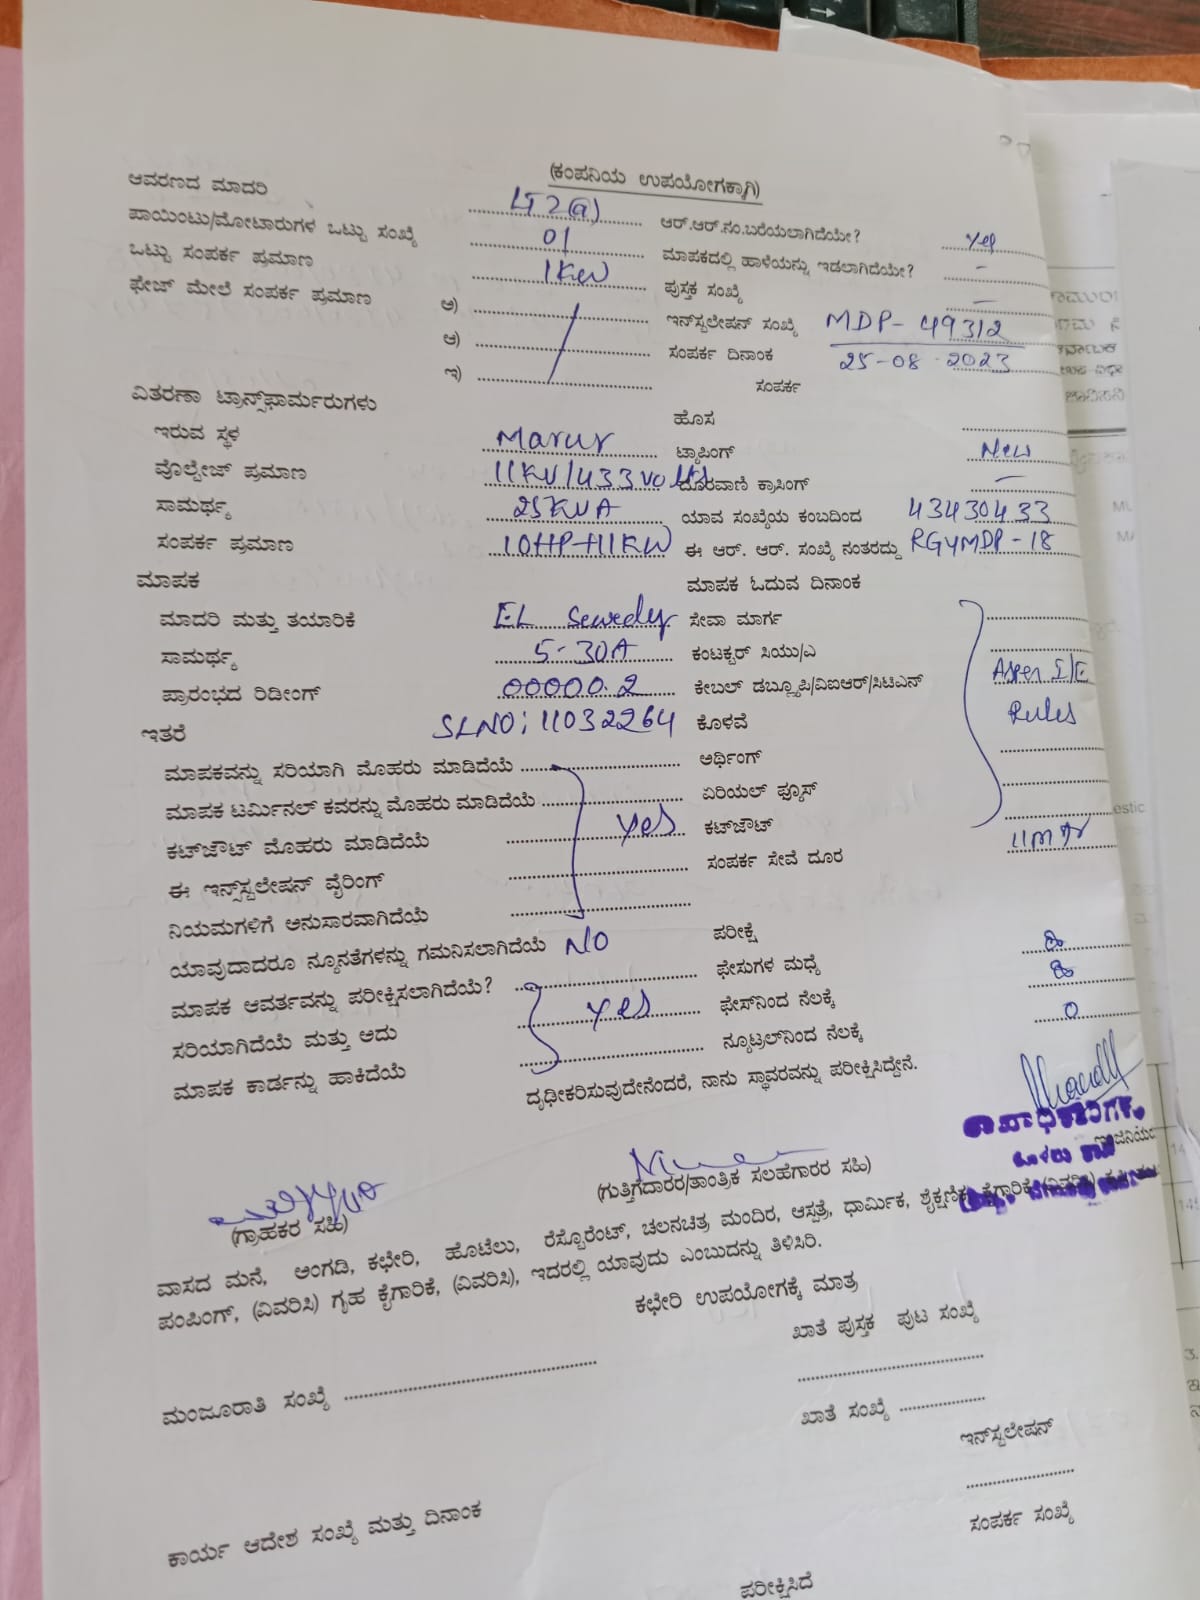 (ಕಂಪನಿಯ ಉಪಯೋಗಕ್ಕಾಗಿ)
ಆವರಣದ ಮಾದರಿ LT 2(a) ಆರ್.ಆರ್.ನಂ.ಬರೆಯಲಾಗಿದೆಯೇ? yes
ಪಾಯಿಂಟು/ಮೋಟಾರುಗಳ ಒಟ್ಟು ಸಂಖ್ಯೆ 01 ಮಾಪಕದಲ್ಲಿ ಹಾಳೆಯನ್ನು ಇಡಲಾಗಿದೆಯೇ? -
ಒಟ್ಟು ಸಂಪರ್ಕ ಪ್ರಮಾಣ 1KW ಪುಸ್ತಕ ಸಂಖ್ಯೆ -
ಫೇಜ್ ಮೇಲೆ ಸಂಪರ್ಕ ಪ್ರಮಾಣ ಅ) ಇನ್‌ಸ್ಟಲೇಷನ್ ಸಂಖ್ಯೆ MDP-49312
ಆ) ಸಂಪರ್ಕ ದಿನಾಂಕ 25-08-2023
ಇ) ಸಂಪರ್ಕ
ವಿತರಣಾ ಟ್ರಾನ್ಸ್‌ಫಾರ್ಮರುಗಳು ಹೊಸ
ಇರುವ ಸ್ಥಳ Marur ಟ್ಯಾಪಿಂಗ್ New
ವೊಲ್ಟೇಜ್ ಪ್ರಮಾಣ 11KV/433volts ದೂರವಾಣಿ ಕ್ರಾಸಿಂಗ್ -
ಸಾಮರ್ಥ್ಯ 25KVA ಯಾವ ಸಂಖ್ಯೆಯ ಕಂಬದಿಂದ 43430433
ಸಂಪರ್ಕ ಪ್ರಮಾಣ 10HP+11KW ಈ ಆರ್. ಆರ್. ಸಂಖ್ಯೆ ನಂತರದ್ದು RGYMDP-18
ಮಾಪಕ ಮಾಪಕ ಓದುವ ದಿನಾಂಕ
ಮಾದರಿ ಮತ್ತು ತಯಾರಿಕೆ EL Sewedy ಸೇವಾ ಮಾರ್ಗ
ಸಾಮರ್ಥ್ಯ 5-30A ಕಂಟಕ್ಟರ್ ಸಿಯು/ಎ
ಪ್ರಾರಂಭದ ರಿಡೀಂಗ್ 00000.2 ಕೇಬಲ್ ಡಬ್ಲ್ಯೂಪಿ/ವಿಐಆರ್/ಸಿಟಿಎನ್ Asper I/E
ಇತರೆ SLNO: 11032264 ಕೊಳವೆ Rules
ಮಾಪಕವನ್ನು ಸರಿಯಾಗಿ ಮೊಹರು ಮಾಡಿದೆಯೆ ಅರ್ಥಿಂಗ್
ಮಾಪಕ ಟರ್ಮಿನಲ್ ಕವರನ್ನು ಮೊಹರು ಮಾಡಿದೆಯೆ ಏರಿಯಲ್ ಫ್ಯೂಸ್
ಕಟ್‌ಔಟ್ ಮೊಹರು ಮಾಡಿದೆಯೆ yes ಕಟ್‌ಔಟ್
ಈ ಇನ್ಸ್‌ಸ್ಟಲೇಷನ್ ವೈರಿಂಗ್ ಸಂಪರ್ಕ ಸೇವೆ ದೂರ 11mtr
ನಿಯಮಗಳಿಗೆ ಅನುಸಾರವಾಗಿದೆಯೆ
ಯಾವುದಾದರೂ ನ್ಯೂನತೆಗಳನ್ನು ಗಮನಿಸಲಾಗಿದೆಯೆ NO ಪರೀಕ್ಷೆ
ಮಾಪಕ ಆವರ್ತವನ್ನು ಪರೀಕ್ಷಿಸಲಾಗಿದೆಯೆ? ಫೇಸುಗಳ ಮಧ್ಯೆ ∞
ಸರಿಯಾಗಿದೆಯೆ ಮತ್ತು ಅದು yes ಫೇಸ್‌ನಿಂದ ನೆಲಕ್ಕೆ ∞
ಮಾಪಕ ಕಾರ್ಡನ್ನು ಹಾಕಿದೆಯೆ ನ್ಯೂಟ್ರಲ್‌ನಿಂದ ನೆಲಕ್ಕೆ 0
ದೃಢೀಕರಿಸುವುದೇನೆಂದರೆ, ನಾನು ಸ್ಥಾವರವನ್ನು ಪರೀಕ್ಷಿಸಿದ್ದೇನೆ.
(ಗ್ರಾಹಕರ ಸಹಿ) (ಗುತ್ತಿಗೆದಾರರ/ತಾಂತ್ರಿಕ ಸಲಹೆಗಾರರ ಸಹಿ)
ವಾಸದ ಮನೆ, ಅಂಗಡಿ, ಕಛೇರಿ, ಹೊಟೆಲು, ರೆಸ್ಟೊರೆಂಟ್, ಚಲನಚಿತ್ರ ಮಂದಿರ, ಆಸ್ಪತ್ರೆ, ಧಾರ್ಮಿಕ, ಶೈಕ್ಷಣಿಕ, ಕೈಗಾರಿಕೆ (ವಿವರಿಸಿ)
ಪಂಪಿಂಗ್, (ವಿವರಿಸಿ) ಗೃಹ ಕೈಗಾರಿಕೆ, (ವಿವರಿಸಿ), ಇದರಲ್ಲಿ ಯಾವುದು ಎಂಬುದನ್ನು ತಿಳಿಸಿರಿ.
ಕಛೇರಿ ಉಪಯೋಗಕ್ಕೆ ಮಾತ್ರ
ಖಾತೆ ಪುಸ್ತಕ ಪುಟ ಸಂಖ್ಯೆ
ಮಂಜೂರಾತಿ ಸಂಖ್ಯೆ
ಖಾತೆ ಸಂಖ್ಯೆ
ಇನ್‌ಸ್ಟಲೇಷನ್
ಕಾರ್ಯ ಆದೇಶ ಸಂಖ್ಯೆ ಮತ್ತು ದಿನಾಂಕ
ಸಂಪರ್ಕ ಸಂಖ್ಯೆ
ಪರೀಕ್ಷಿಸಿದೆ